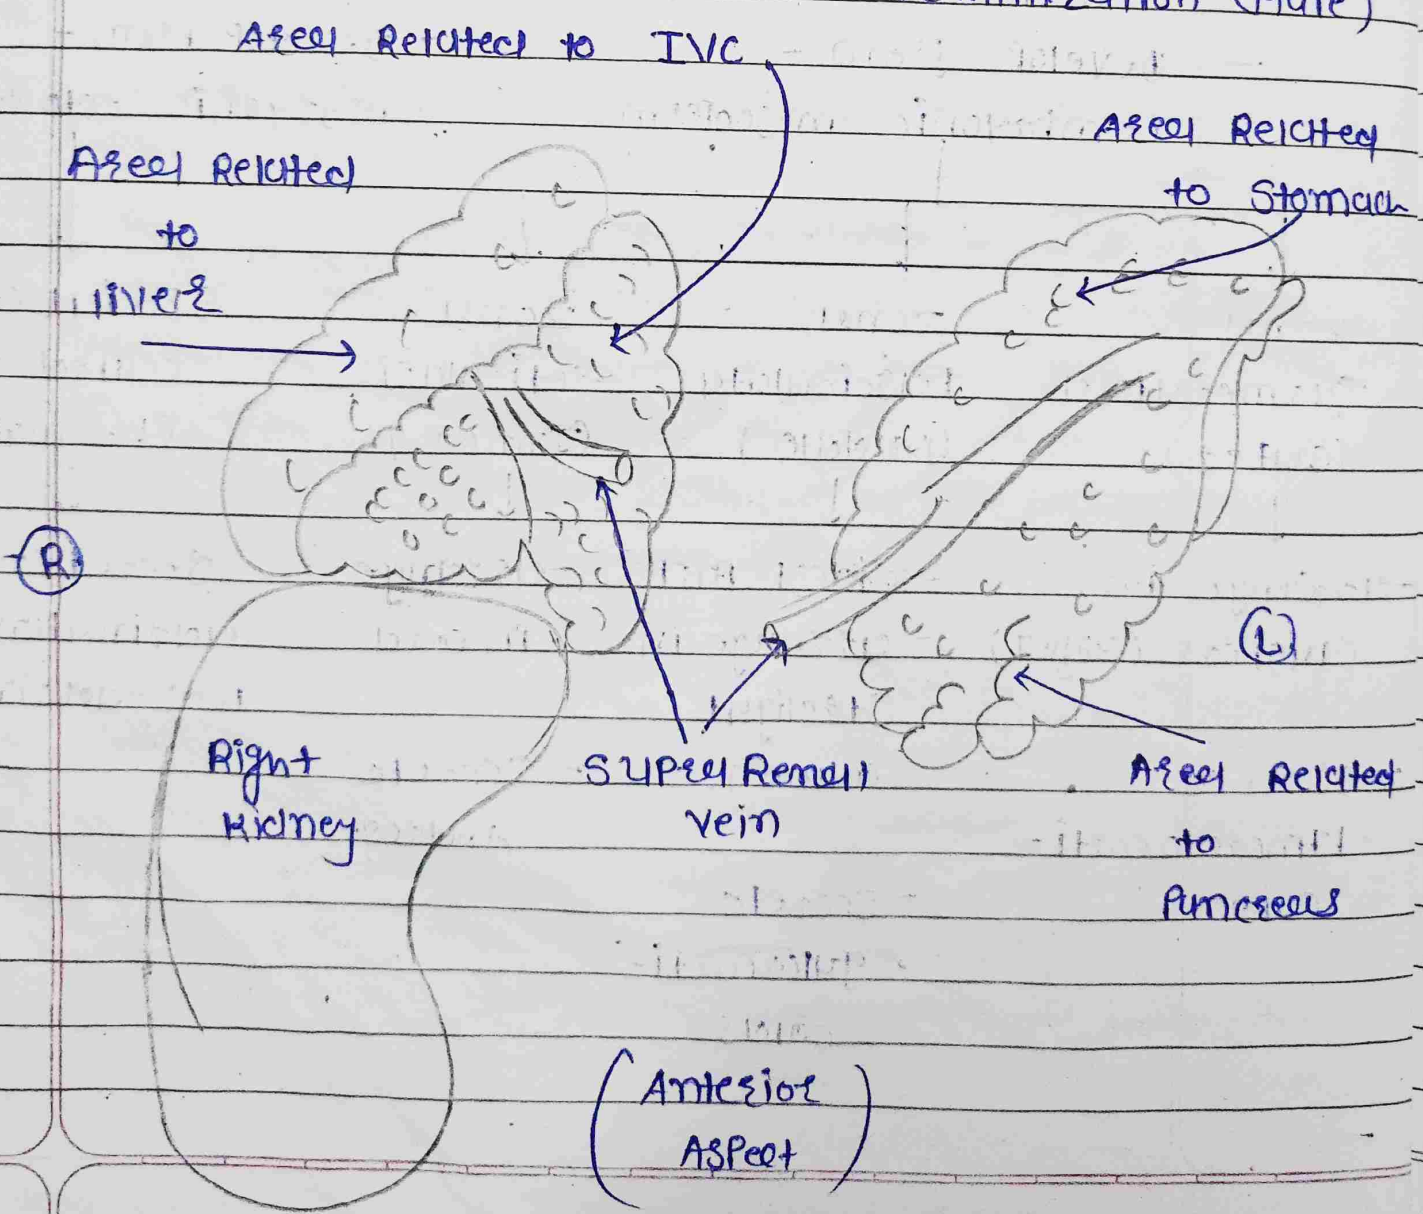 (Male)
Area Related to IVC
Area Related
to Stomach
Area Related
to
liver
R
L
Right
Kidney
Supra Renal
vein
Area Related
to
Pancreas
(Anterior
Aspect)